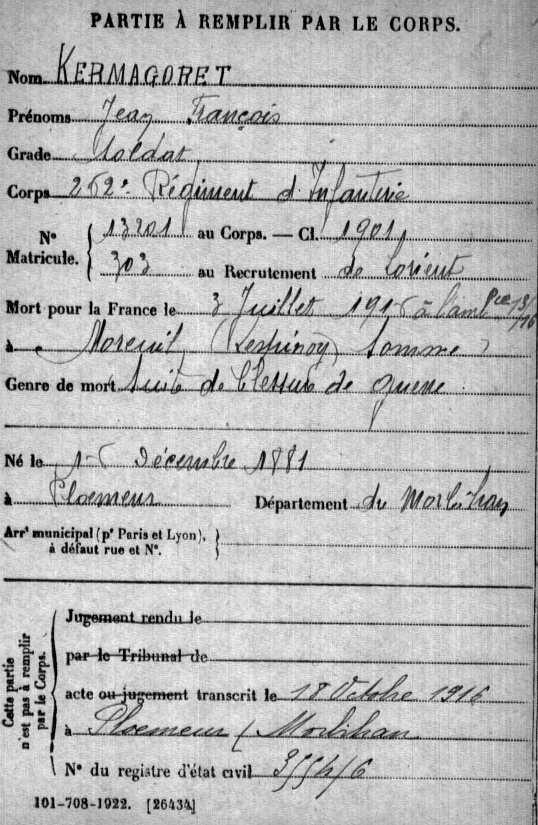 PARTIE À REMPLIR PAR LE CORPS.
Nom KERMAGORET
Prénoms Jean François
Grade Soldat
Corps 262e Régiment d'Infanterie
N° Matricule. { 13201 au Corps. — Cl. 1901
303 au Recrutement de Lorient
Mort pour la France le 3 Juillet 1916 à l'amb
à Moreuil (Lespinoy) Somme
Genre de mort Suite de blessures de guerre
Né le Décembre 1881
à Ploemeur Département du Morbihan
Arrt municipal (pr Paris et Lyon), }
à défaut rue et N°.
Cette partie
n'est pas à remplir
par le Corps.
Jugement rendu le
par le Tribunal de
acte ou jugement transcrit le 18 Octobre 1916
à Ploemeur (Morbihan
N° du registre d'état civil
101-708-1922. [26434]